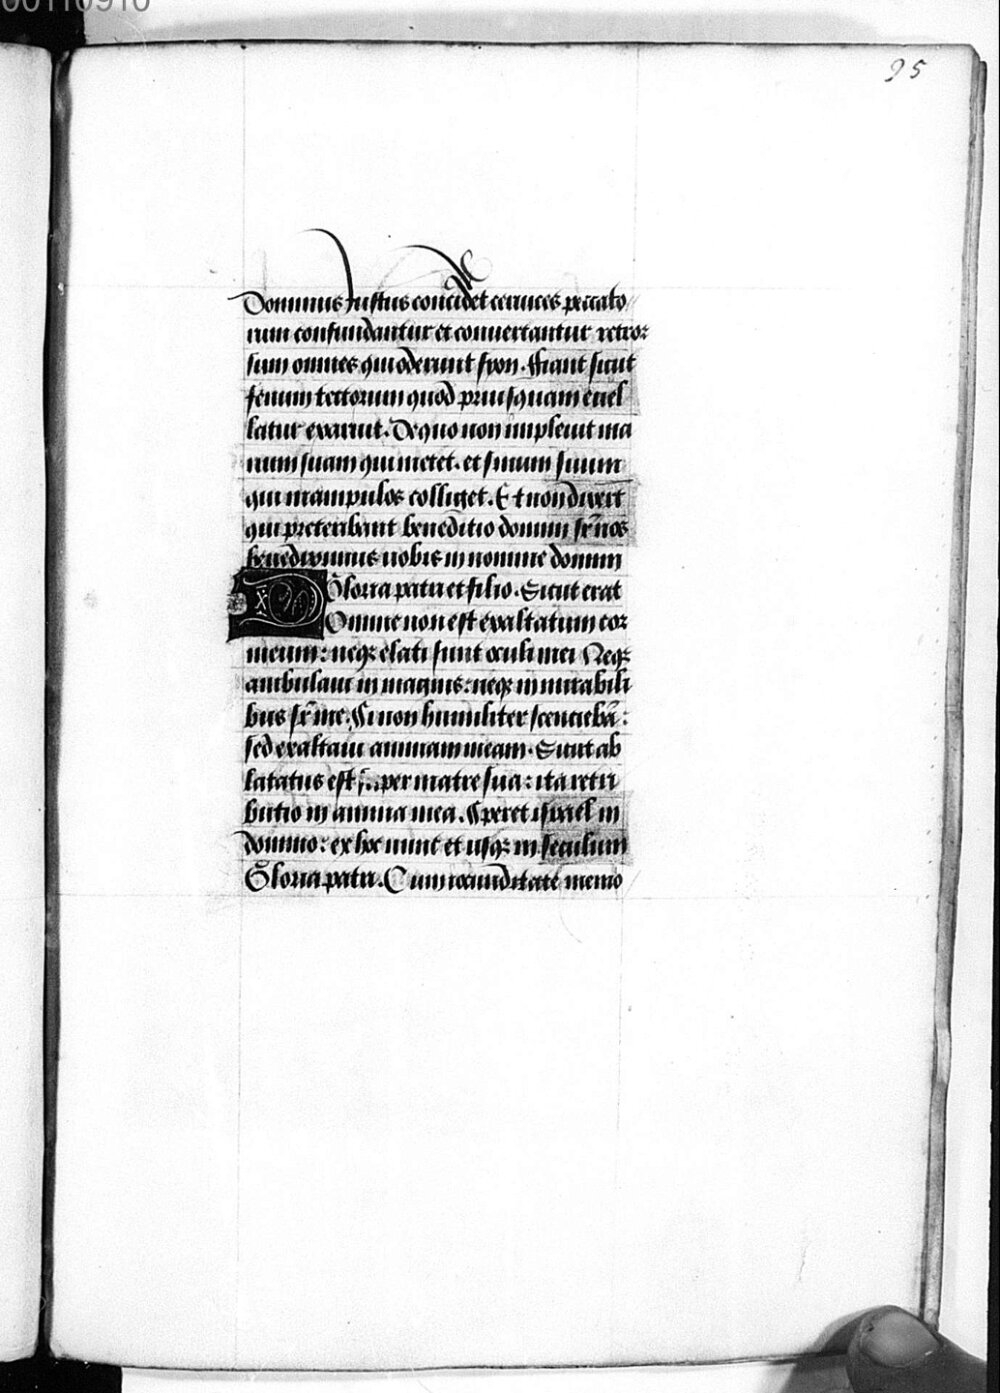 00110910
95
Dominus Iustus concidet ceruices peccato
rum confundantur et conuertantur retror
sum omnes qui oderunt syon. Fiant sicut
fenum tectorum quod priusquam euel
latur exaruit. De quo non impleuit ma
num suam qui metet. et sinum suum
qui manipulos colliget. Et non dixert
qui preteribant beneditio domini sr̄ nos
benediximus uobis in nomine domini
Gloria patri et filio. Sicut erat
Domine non est exaltatum cor
meum: neqꝫ elati sunt oculi mei Neqꝫ
ambulaui in magnis: neqꝫ in mirabili
bus sr̄ me. Si non humiliter sentiebā:
sed exaltaui animam meam. Sicut ab
latatus est per matre sua: ita retri
butio in anima mea. Speret israel in
domino: ex hoc nunc et usqꝫ in seculum
Gloria patri. Cum iocunditate memo